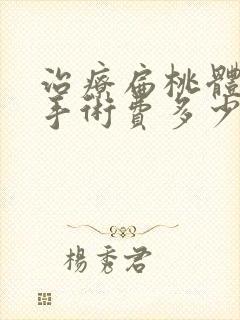 治療扁桃體
手術費多少
楊秀君